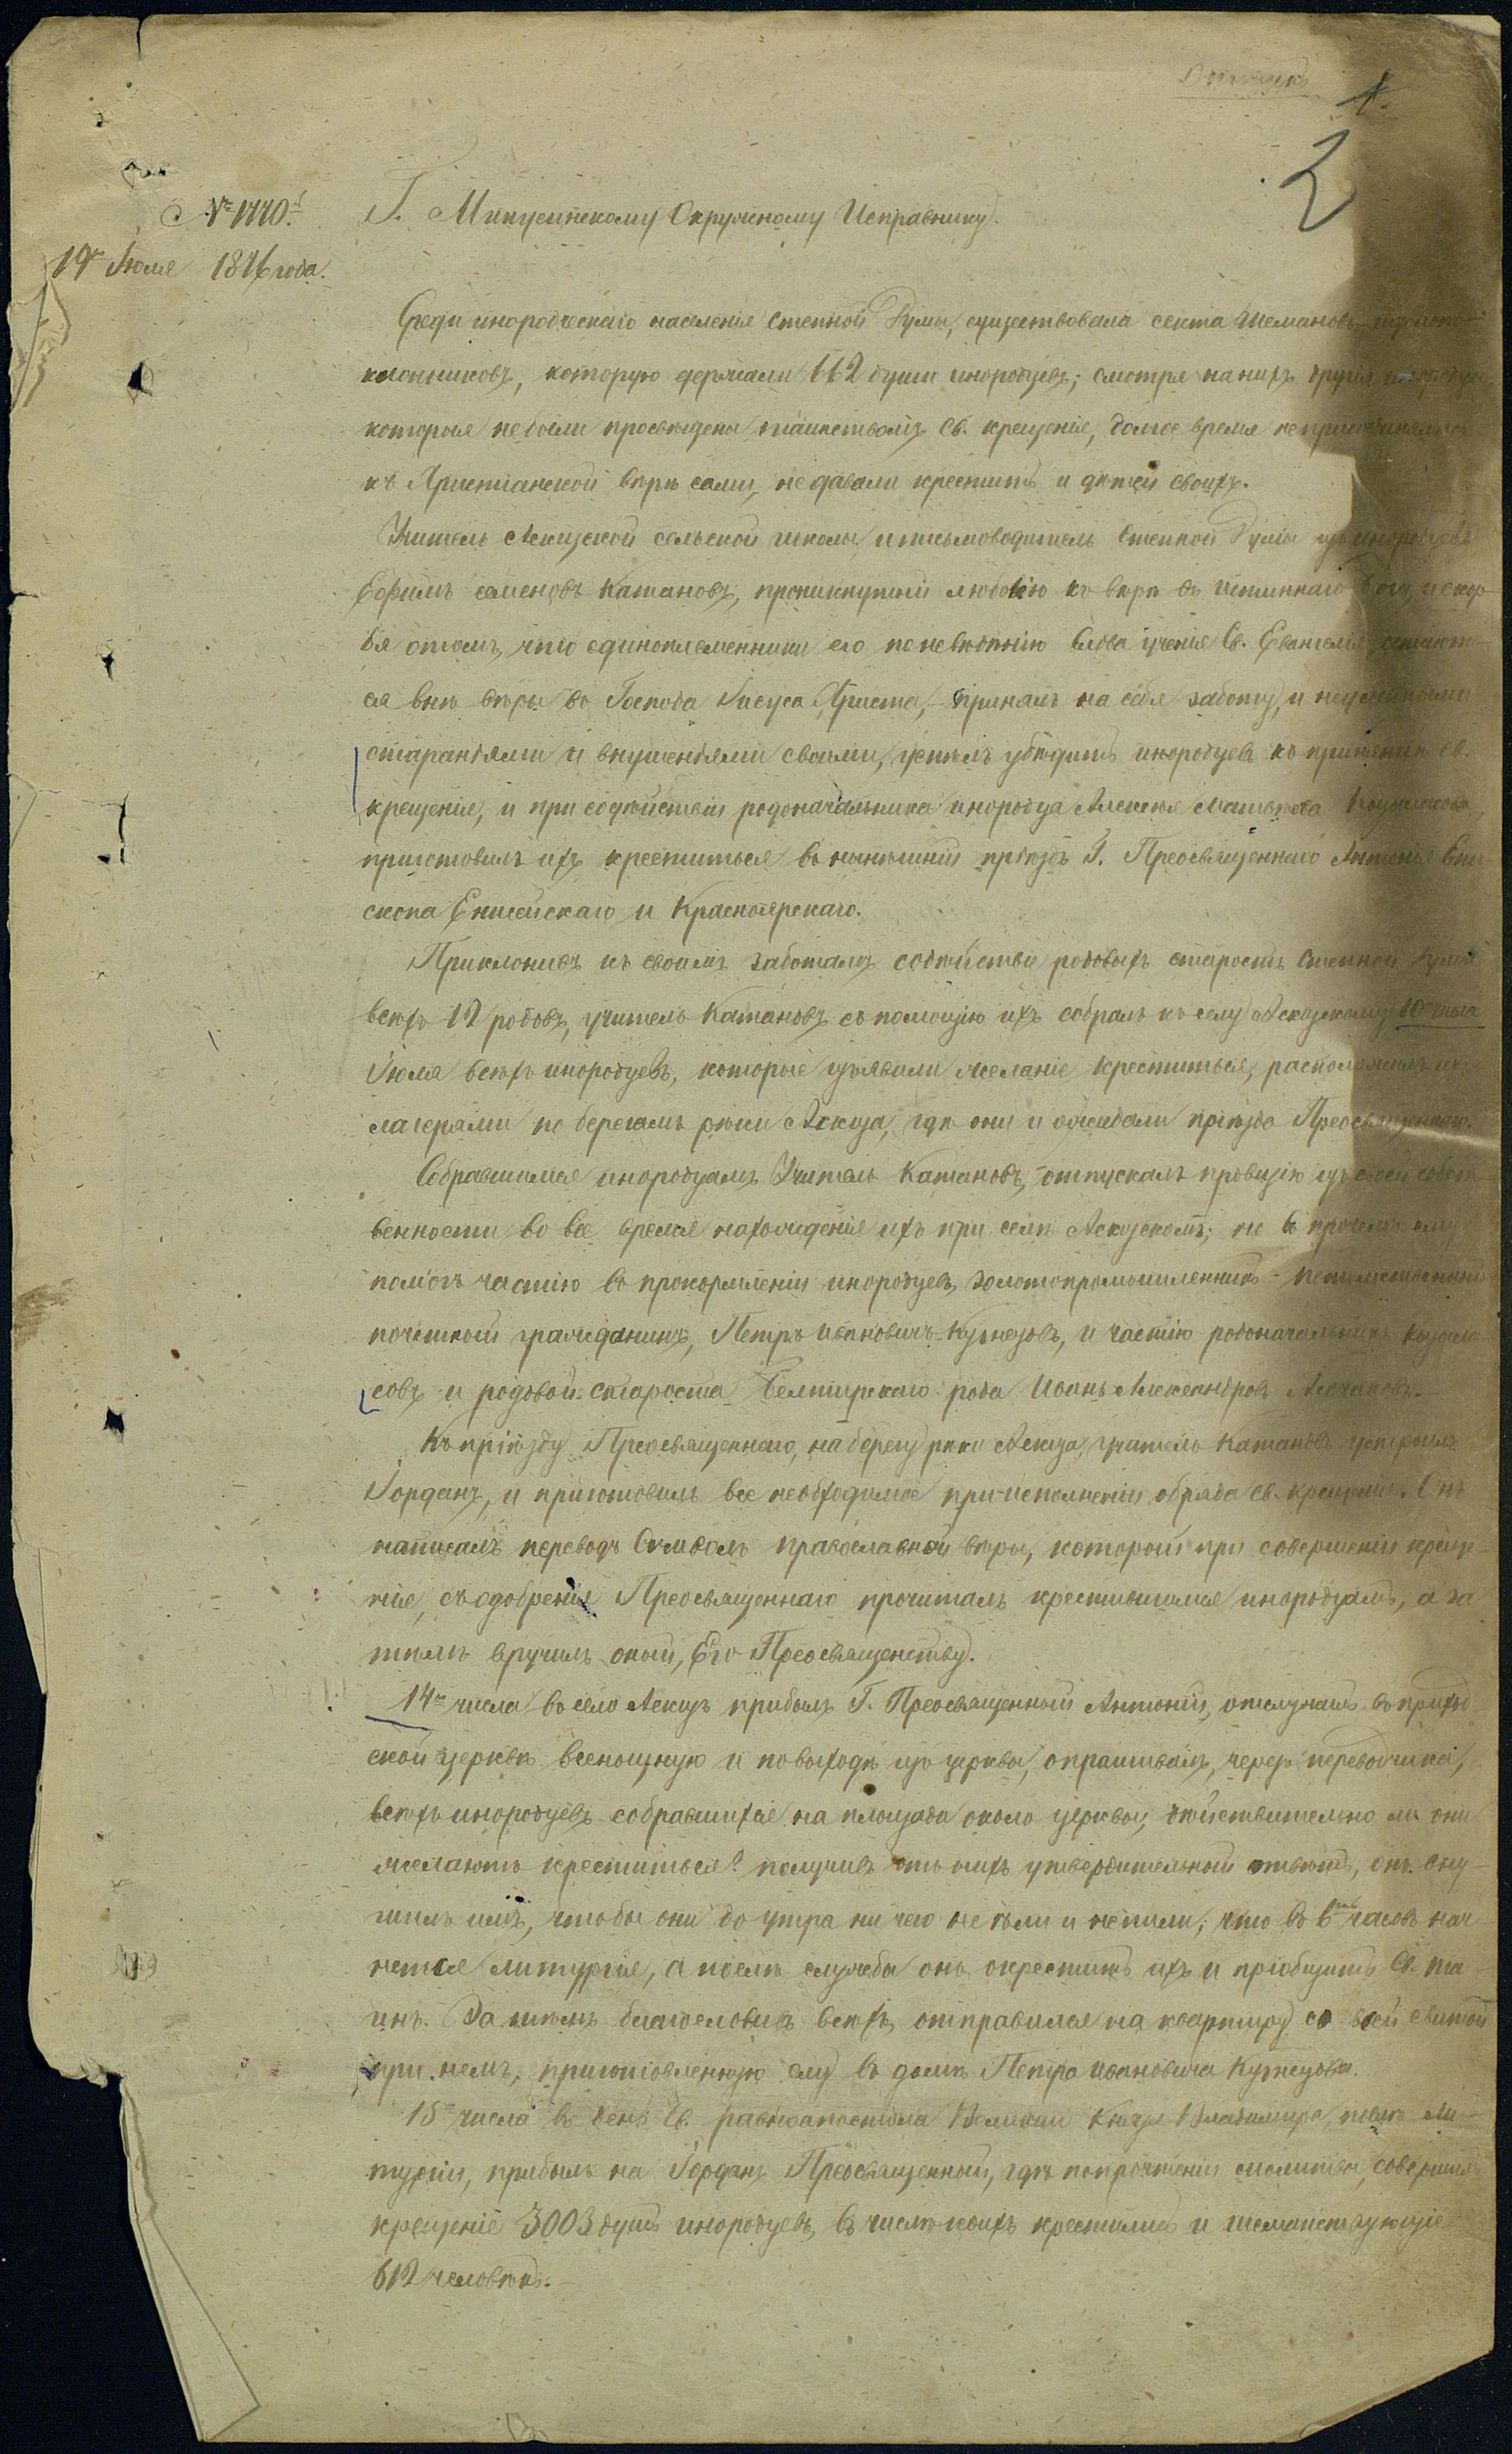 Отпускъ
2
№ 1770.
19го Іюля 1876 года.
Г. Минусинскому Окружному Исправнику.
Среди инородческаго населенія Степной Думы, существовала секта Шемановъ – идолопо-
клонниковъ, которую держали 612 души инородцевъ; смотря на нихъ другія инородцы,
которыя небыли просвѣщены таинствомъ Св. крещенія, долгое время неприсоединялись
къ Христіанской вѣрѣ сами, не давали крестить и дѣтей своихъ.
Учитель Аскизской сельской школы и письмоводитель Степной Думы изъ инородцевъ
Ефимъ Семеновъ Катановъ, проникнутый любовію къ вѣрѣ въ истиннаго Бога, и скор-
бя отомъ, что единоплеменники его по невѣдѣнію Слова ученія Св. Евангелія, остают-
ся внѣ вѣры въ Господа Іисуса Христа, – принялъ на себя заботу, и неусыпными
стараніями и внушеніями своими, успѣлъ убѣдить инородцевъ къ принятію св.
крещенія, и при содѣйствіи родоначальника инородца Алексѣя
приготовилъ ихъ креститься въ нынѣшній пріѣздъ Г. Преосвященнаго Антонія Епи-
скопа Енисейскаго и Красноярскаго.
Приклонивъ къ своимъ заботамъ содѣйствіе родовыхъ старостъ Степной Думы
всѣхъ 12 родовъ, учитель Катановъ съ помощію ихъ собралъ къ селу Аскизскому 10 числа
Іюля всѣхъ инородцевъ, которые изъявили желаніе креститься, расположилъ ихъ
лагерями по берегамъ рѣки Аскиза, гдѣ они и ожидали пріѣзда Преосвященнаго.
Собравшимся инородцамъ Учитель Катановъ, отпускалъ провизію изъ своей собст-
венности во все время нахожденія ихъ при селѣ Аскизскомъ; но въ прочемъ ему
помогъ частію въ прокормленіи инородцевъ, золотопромышленникъ – потомственный
почетный гражданинъ, Петръ Ивановичъ Кузнецовъ, и частію родоначальникъ Кызыла-
совъ и родовой староста Бельтирскаго рода Иванъ Александровъ
Къ пріѣзду Преосвященнаго, на берегу рѣки Аскиза, учитель Катановъ устроилъ
Іорданъ, и приготовилъ все необходимое при исполненіи обряда св. крещенія. Онъ
написалъ переводъ Сѵмволъ православной вѣры, который при совершеніи креще-
нія, съ одобренія Преосвященнаго прочиталъ крестившимся инородцамъ, а за
тѣмъ вручилъ оный, Его Преосвященству.
14го числа въ село Аскизъ прибылъ Г. Преосвященный Антоній, отслужилъ въ приход-
ской церквѣ всенощную и по выходѣ изъ церквы, опрашивалъ, черезъ переводчика,
всѣхъ инородцевъ собравшихся на площади около церквы, дѣйствительно ли они
желаютъ креститься? получивъ отъ нихъ утвердительный отвѣтъ, онъ вну-
шилъ имъ, чтобы они до утра ни чего не ѣли и непили; что въ 6 часовъ нач-
нется литургія, а послѣ службы онъ окреститъ ихъ и пріобщитъ Св. та-
инъ. За тѣмъ благословивъ всѣхъ, отправился на квартиру со всей свитой
при немъ, приготовленную ему въ домѣ Петра Ивановича Кузнецова.
15го числа въ день Св. равноапостола Великаго Князя Владимира, послѣ Ли-
тургіи, прибылъ на Іорданъ Преосвященный, гдѣ попрочтеніи молитвы, совершилъ
крещеніе 3003 душъ инородцевъ, въ числѣ коихъ крестились и шеманствующіе
612 человѣкъ. –